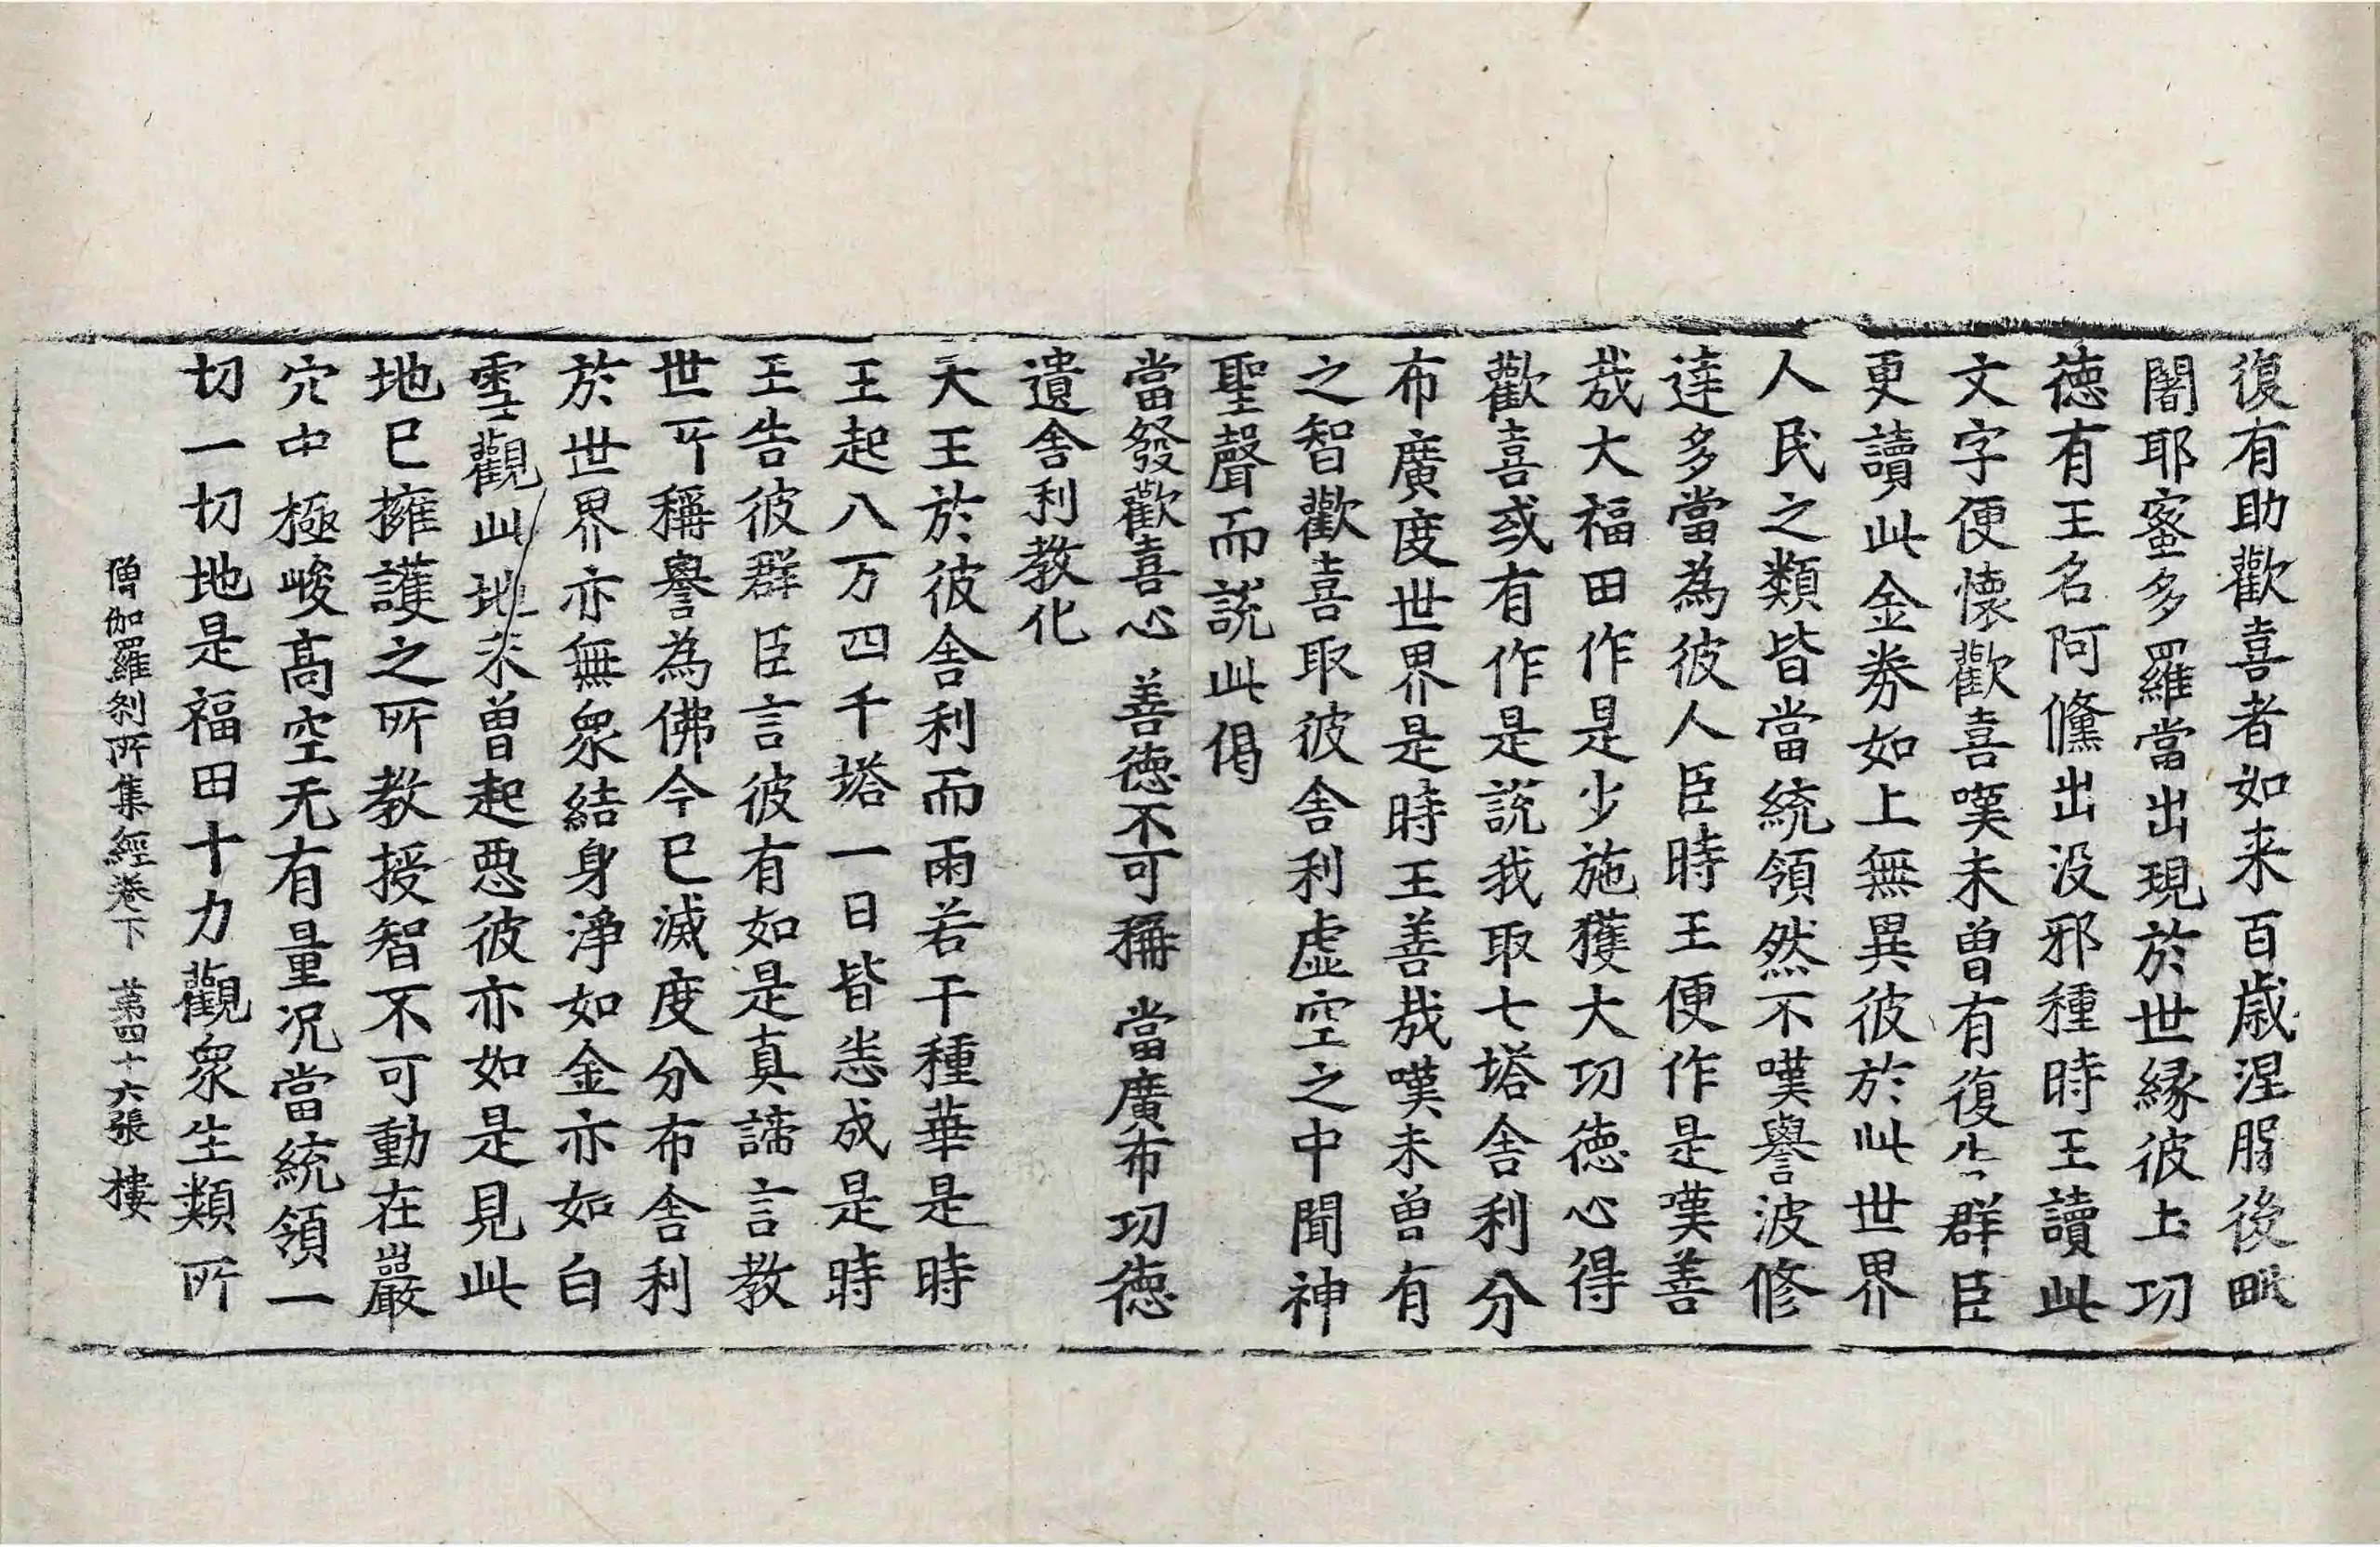 復有助歡喜者如来百歳涅槃後毗
闍耶蜜多羅當出現於世縁彼土功
徳有王名阿儵出没邪種時王讀此
文字便懷歡喜嘆未曽有復告群臣
更讀此金券如上無異彼於此世界
人民之類皆當統領然不嘆譽波修
達多當為彼人臣時王便作是嘆善
㢤大福田作是少施獲大功徳心得
歡喜或有作是説我取七塔舎利分
布廣度世界是時王善㢤嘆未曽有
之智歡喜取彼舎利虚空之中聞神
聖聲而説此偈
當發歡喜心 善徳不可稱 當廣布功徳
遺舎利教化
天王於彼舎利而雨若干種華是時
王起八万四千塔一日皆悉成是時
王告彼群臣言彼有如是真諦言教
世所稱譽為佛今已滅度分布舎利
於世界亦無衆結身淨如金亦如白
雪觀此地未曽起惡彼亦如是見此
地已擁護之所教授智不可動在巖
穴中極峻高空无有量况當統領一
切一切地是福田十力觀衆生類所
僧伽羅刹所集經卷下 苐四十六張 樓